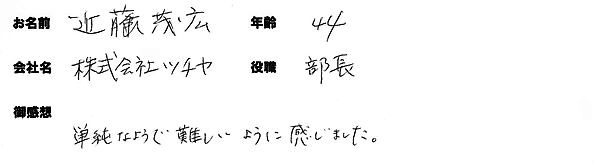 お名前 近藤茂広 年齢 44
会社名 株式会社ツチヤ 役職 部長
御感想
単純なようで難しいように感じました。